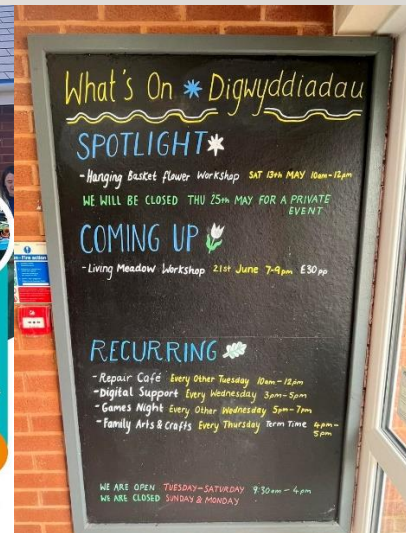 What's On * Digwyddiadau
SPOTLIGHT
- Hanging Basket flower Workshop SAT 13th MAY 10am-12pm
WE WILL BE CLOSED THU 25th MAY FOR A PRIVATE
EVENT
COMING UP
- Living Meadow Workshop 21st June 7-9pm £30pp
RECURRING
- Repair Café Every Other Tuesday 10am-12pm
- Digital Support Every Wednesday 3pm-5pm
- Games Night Every Other Wednesday 5pm-7pm
- Family Arts & Crafts Every Thursday Term Time 4pm-
5pm
WE ARE OPEN TUESDAY-SATURDAY 9:30am-4pm
WE ARE CLOSED SUNDAY & MONDAY
Fire action